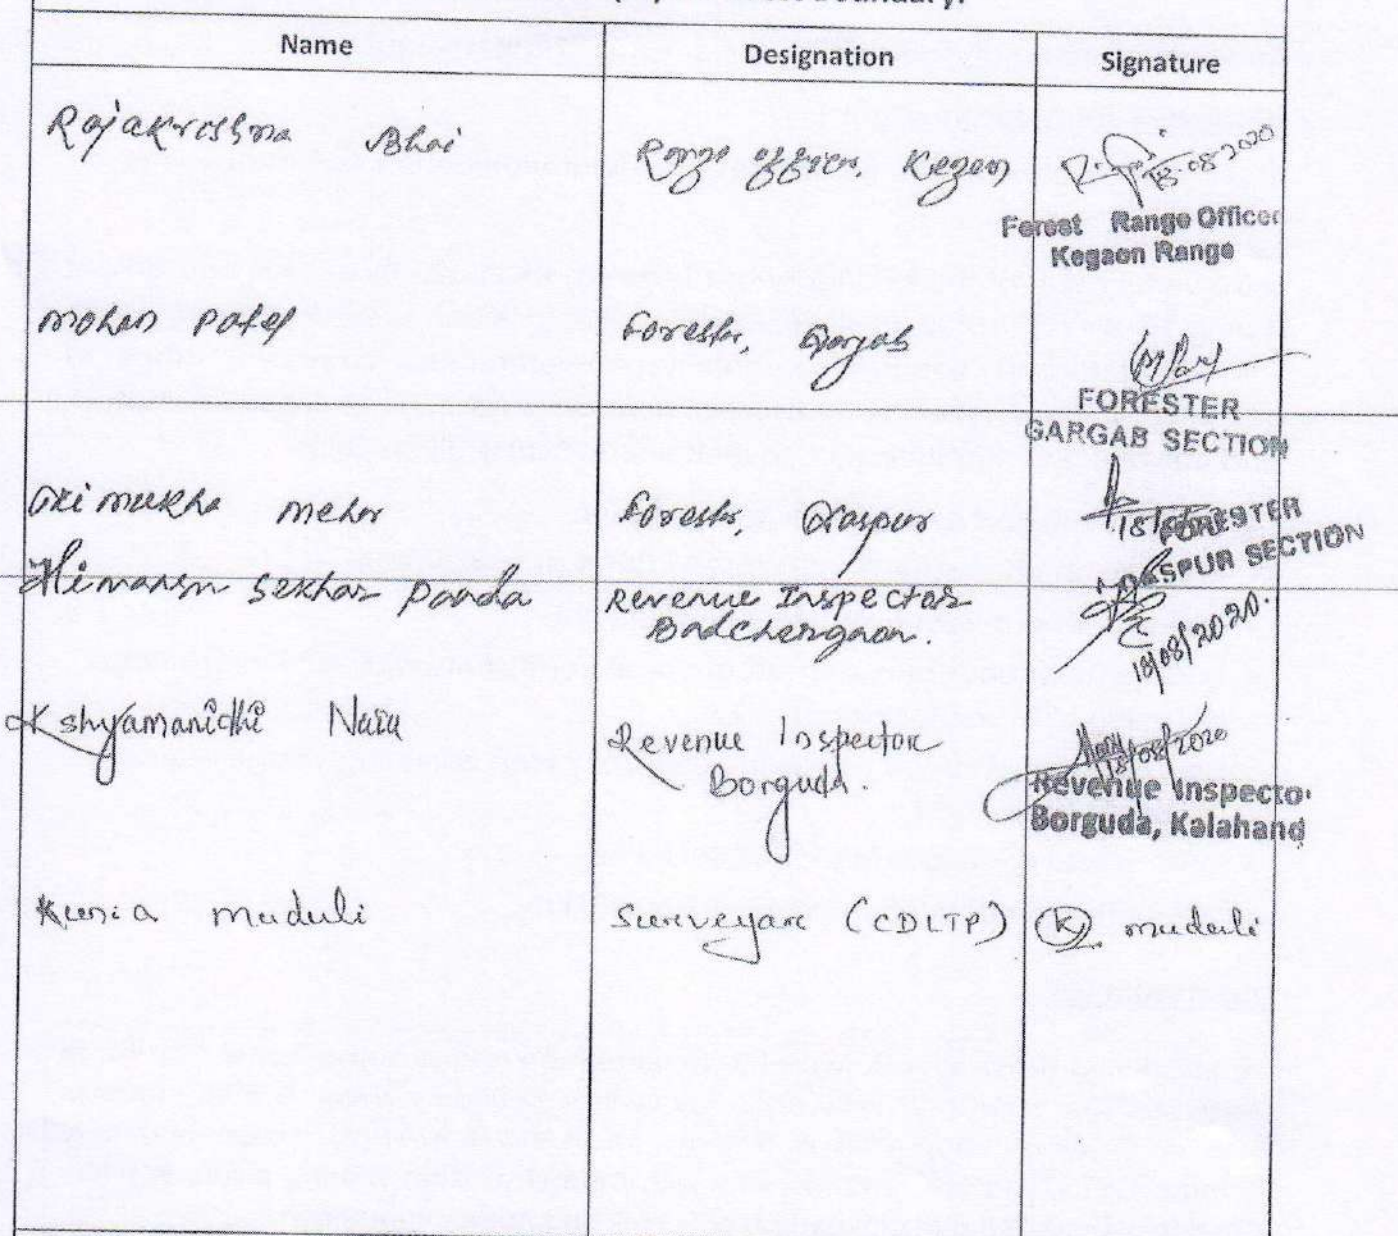 Boundary.
Name Designation Signature
Rajakrishna Bhoi Range Officer, Kegaon 18.08.2020
Forest Range Officer
Kegaon Range
Mohan Patel Forester, Gargab
FORESTER
GARGAB SECTION
Mehar Forester, 18/
FORESTER
ASPUR SECTION
Himansu Sekhar Panda Revenue Inspector
Badchergaon. 18/08/2020.
Kshyamanidhi Naik Revenue Inspector 18/08/2020
Borguda.
Revenue Inspecto
Borguda, Kalahand
Kunia Muduli Surveyor (CDLTP) K. Muduli